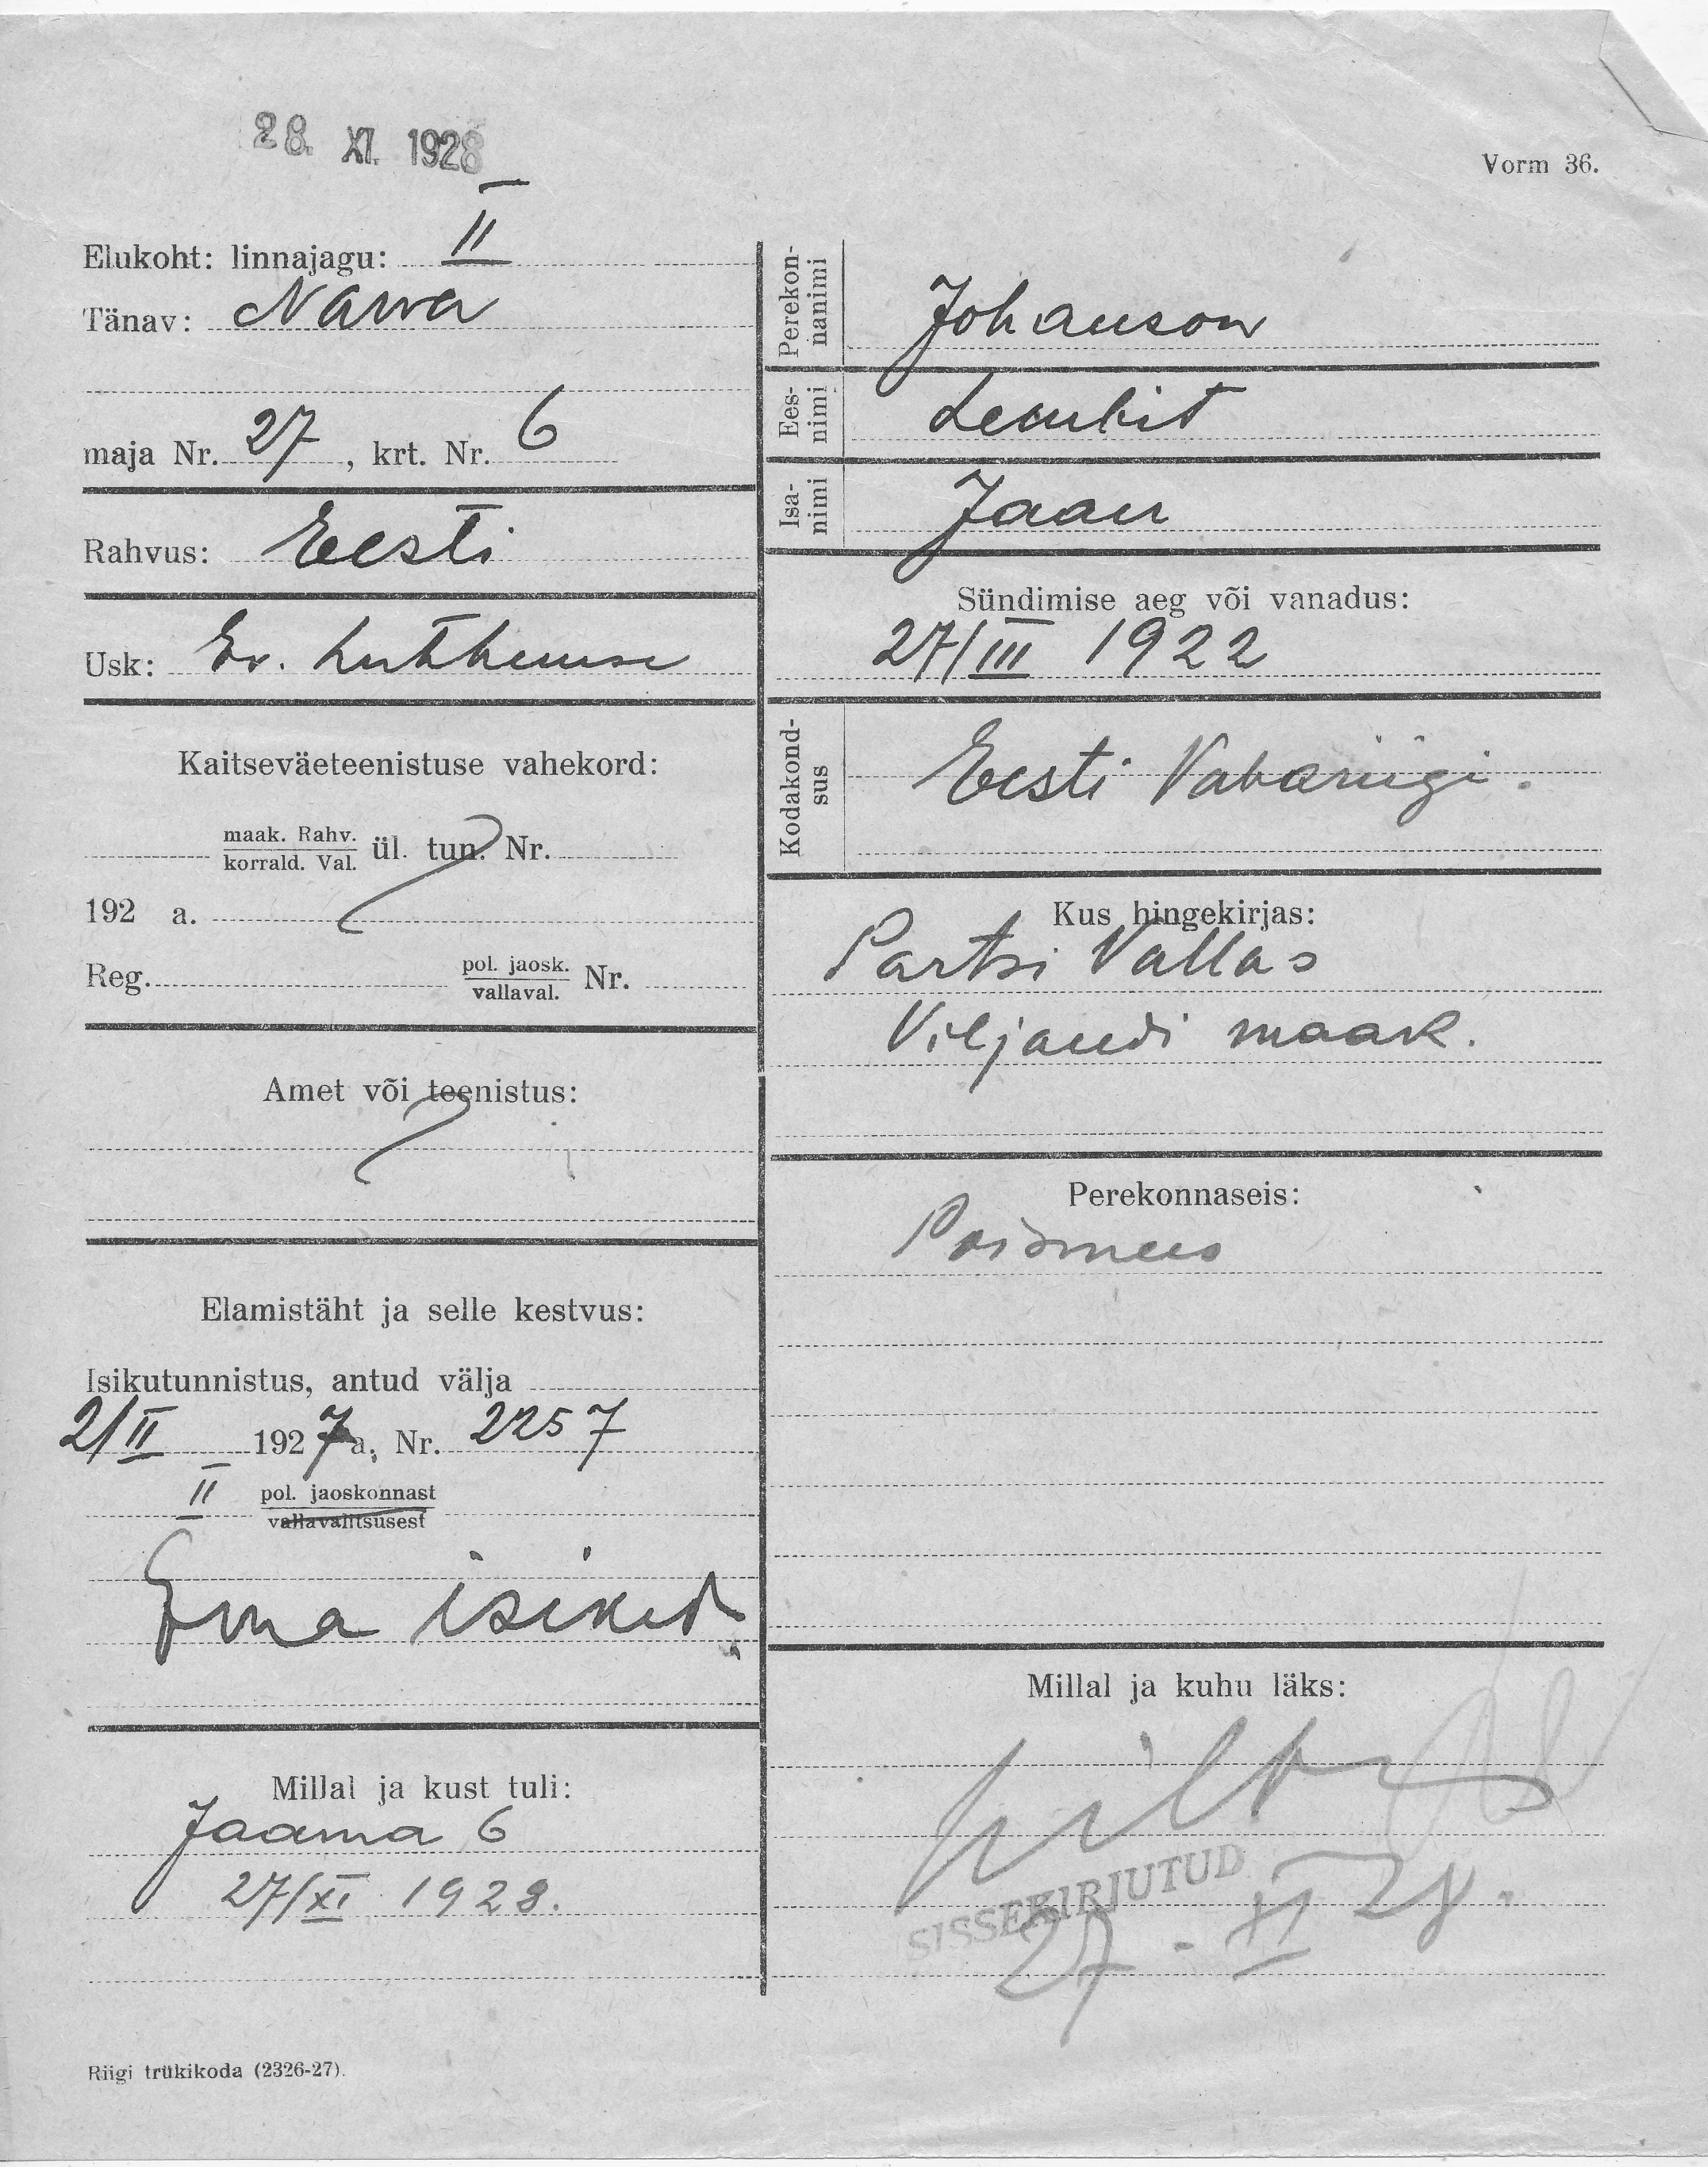 28. XI. 1928
Vorm 36.
Elukoht: linnajagu: II
Tänav: Narva
maja Nr. 27, krt. Nr. 6
Rahvus: Eesti
Usk: Ev. Lutheruse
Kaitseväeteenistuse vahekord:
maak. Rahv.
korrald. Val. ül. tun. Nr.
192 a.
Reg. pol. jaosk.
vallaval. Nr.
Amet või teenistus:
Elamistäht ja selle kestvus:
Isikutunnistus, antud välja
2/II 1927 a, Nr. 2257
II pol. jaoskonnast
vallavalitsusest
Ema isikut.
Millal ja kust tuli:
Jaama 6
27/XI 1928.
Riigi trükikoda (2326-27).
Perekon-
nanimi Johanson
Ees-
nimi Lembit
Isa-
nimi Jaan
Sündimise aeg või vanadus:
27/III 1922
Kodakond-
sus Eesti Vabariigi.
Kus hingekirjas:
Partsi Vallas
Viljandi maak.
Perekonnaseis:
Poismees
Millal ja kuhu läks:
SISSEKIRJUTUD
27 - XI 28.